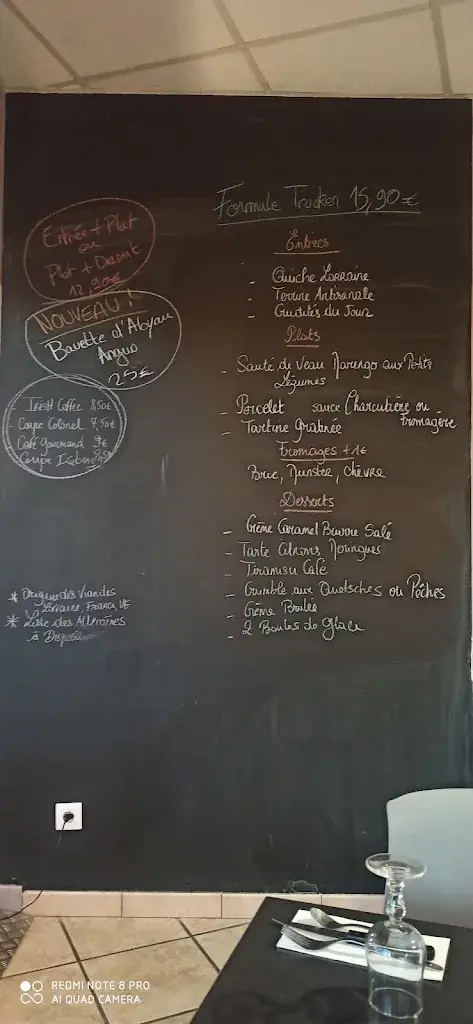 Entrée + Plat
ou
Plat + Dessert
12,90€
NOUVEAU !
Bavette d'Aloyau
Angus
25€
Irish Coffee 8,50€
- Coupe Colonel 7,50€
Café gourmand 9€
Coupe Iceberg
* Origine des Viandes
Lorraine, France, UE
* Liste des Allergènes
à Disposition
Formule Tricker 15,90€
Entrées
- Quiche Lorraine
- Terrine Artisanale
- Crudités du Jour
Plats
- Sauté de Veau Marengo aux Petits
Légumes
- Porcelet sauce Charcutière ou
fromagère
- Tartine Gratinée
Fromages +1€
Brie, Munster, Chèvre
Desserts
- Crème Caramel Beurre Salé
- Tarte Citrons Meringués
- Tiramisu Café
- Crumble aux Quetsches ou Pêches
- Crème Brulée
- 2 Boules de Glace
REDMI NOTE 8 PRO
AI QUAD CAMERA